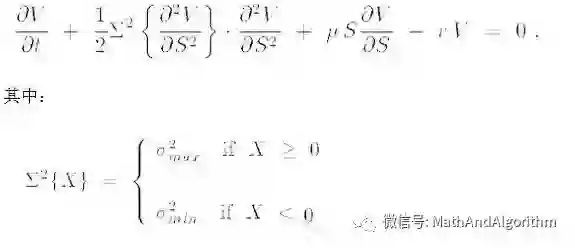 ∂V/∂t + 1/2 Σ² { ∂²V/∂S² } · ∂²V/∂S² + μ S ∂V/∂S − r V = 0 .
其中：
Σ²{X} = { σ²max if X ≥ 0
σ²min if X < 0
微信号: MathAndAlgorithm